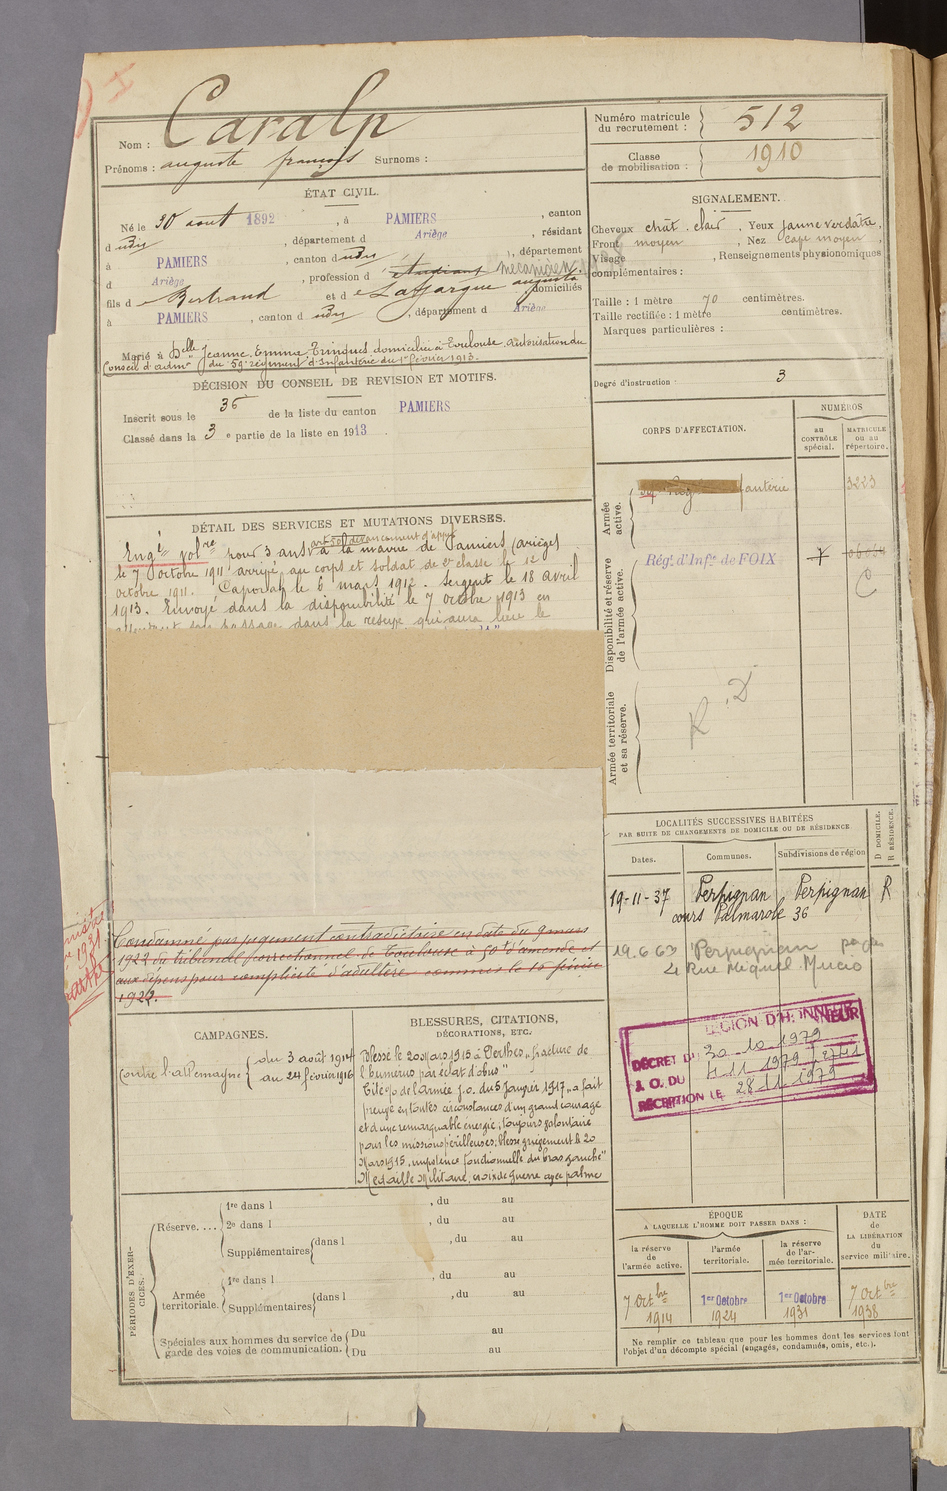 Nom : Caralp
Prénoms : auguste françois Surnoms :
Numéro matricule
du recrutement : 512
Classe
de mobilisation : 1910
ÉTAT CIVIL.
Né le 30 aout 1892, à PAMIERS, canton
d udn, département d Ariège, résidant
à PAMIERS, canton d udn, département
d Ariège, profession d étudiant mecanicien
fils d e Bertrand et d e Laffargue augusta domiciliés
à PAMIERS, canton d udn, département d Ariège
Marié à Delle Jeanne Emma Trinqués domiciliée à Toulouse, autorisation du
Conseil d'admon du 59e régiment d'Infanterie du 1er février 1913.
SIGNALEMENT.
Cheveux chât. clair. Yeux jaune verdâtre,
Front moyen, Nez moyen,
Visage, Renseignements physionomiques
complémentaires :
Taille : 1 mètre 70 centimètres.
Taille rectifiée : 1 mètre centimètres.
Marques particulières :
Degré d'instruction : 3
DÉCISION DU CONSEIL DE REVISION ET MOTIFS.
Inscrit sous le 36 de la liste du canton PAMIERS
Classé dans la 3 e partie de la liste en 1913.
DÉTAIL DES SERVICES ET MUTATIONS DIVERSES.
Engé volre pour 3 ans à la mairie de Pamiers (ariège)
le 7 Octobre 1911 arrivé au corps et soldat de 2e classe le 12
octobre 1911. Caporal le 6 mars 1912. Sergent le 18 avril
1913. Envoyé dans la disponibilité le 7 octobre 1913 en
attendant son passage dans la réserve qui aura lieu le
Condamné par jugement contradictoire en date du 9 mars
1922 du tribunal correctionnel de Toulouse à 50f d'amende et
aux dépens pour complicité d'adultère commis le 15 février
1922.
CORPS D'AFFECTATION.
NUMÉROS
au
CONTRÔLE
spécial.
MATRICULE
ou au
répertoire.
Armée
active.
3223
Disponibilité et réserve
de l'armée active.
Régt d'Infie de FOIX
C
Armée territoriale
et sa réserve.
R. D
LOCALITÉS SUCCESSIVES HABITÉES
PAR SUITE DE CHANGEMENTS DE DOMICILE OU DE RÉSIDENCE
Dates. Communes. Subdivisions de région
D DOMICILE.
R RÉSIDENCE.
19-11-37 Perpignan Perpignan R
cours Palmarole 36
19.6.63 Perpignan
4 Rue Miguel Mucio
LÉGION D'HONNEUR
DÉCRET DU 30 10 1979
J. O. DU 4 11 1979
RÉCEPTION LE 28 11 1979
CAMPAGNES.
Contre l'allemagne du 3 août 1914
au 24 février 1916
BLESSURES, CITATIONS,
DÉCORATIONS, ETC.
Blessé le 20 Mars 1915 à Perthes "fracture de
l'humerus par éclat d'obus"
Cité o/ de l'armée J.O. du 5 Janvier 1917 "a fait
preuve en toutes circonstances d'un grand courage
et d'une remarquable energie; toujours volontaire
pour les missions périlleuses; blessé grièvement le 20
Mars 1915, impotence fonctionnelle du bras gauche"
Medaille Militaire, croix de Guerre avec palme
PÉRIODES D'EXERCICES.
Réserve....
1re dans l, du au
2e dans l, du au
Supplémentaires dans l, du au
Armée
territoriale.
1re dans l, du au
Supplémentaires dans l, du au
Spéciales aux hommes du service de
garde des voies de communication.
Du au
Du au
ÉPOQUE
A LAQUELLE L'HOMME DOIT PASSER DANS :
la réserve
de
l'armée active.
l'armée
territoriale.
la réserve
de l'ar-
mée territoriale.
DATE
de
LA LIBÉRATION
du
service militaire.
7 Octbre
1914
1er Octobre
1924
1er Octobre
1931
7 Octbre
1938
Ne remplir ce tableau que pour les hommes dont les services font
l'objet d'un décompte spécial (engagés, condamnés, omis, etc.).